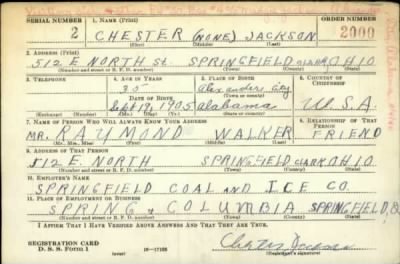 SERIAL NUMBER 1. NAME (Print) ORDER NUMBER
2 CHESTER (NONE) JACKSON 2000
(First) (Middle) (Last)
2. ADDRESS (Print)
512 E NORTH St. SPRINGFIELD CLARK OHIO
(Number and street or R. F. D. number) (Town) (County) (State)
3. TELEPHONE 4. AGE IN YEARS 5. PLACE OF BIRTH 6. COUNTRY OF CITIZENSHIP
35 Alexander City
DATE OF BIRTH (Town or county)
Sept 19, 1905 Alabama U.S.A.
(Exchange) (Number) (Mo.) (Day) (Yr.) (State or country)
7. NAME OF PERSON WHO WILL ALWAYS KNOW YOUR ADDRESS 8. RELATIONSHIP OF THAT PERSON
MR. RAYMOND WALKER FRIEND
(Mr., Mrs., Miss) (First) (Middle) (Last)
9. ADDRESS OF THAT PERSON
512 E. NORTH SPRINGFIELD CLARK OHIO
(Number and street or R. F. D. number) (Town) (County) (State)
10. EMPLOYER'S NAME
SPRINGFIELD COAL AND ICE CO.
11. PLACE OF EMPLOYMENT OR BUSINESS
SPRING & COLUMBIA SPRINGFIELD,
(Number and street or R. F. D. number) (Town) (County) (State)
I AFFIRM THAT I HAVE VERIFIED ABOVE ANSWERS AND THAT THEY ARE TRUE.
REGISTRATION CARD
D. S. S. Form 1 (over) 16—17105 Chester Jackson
(Registrant's signature)